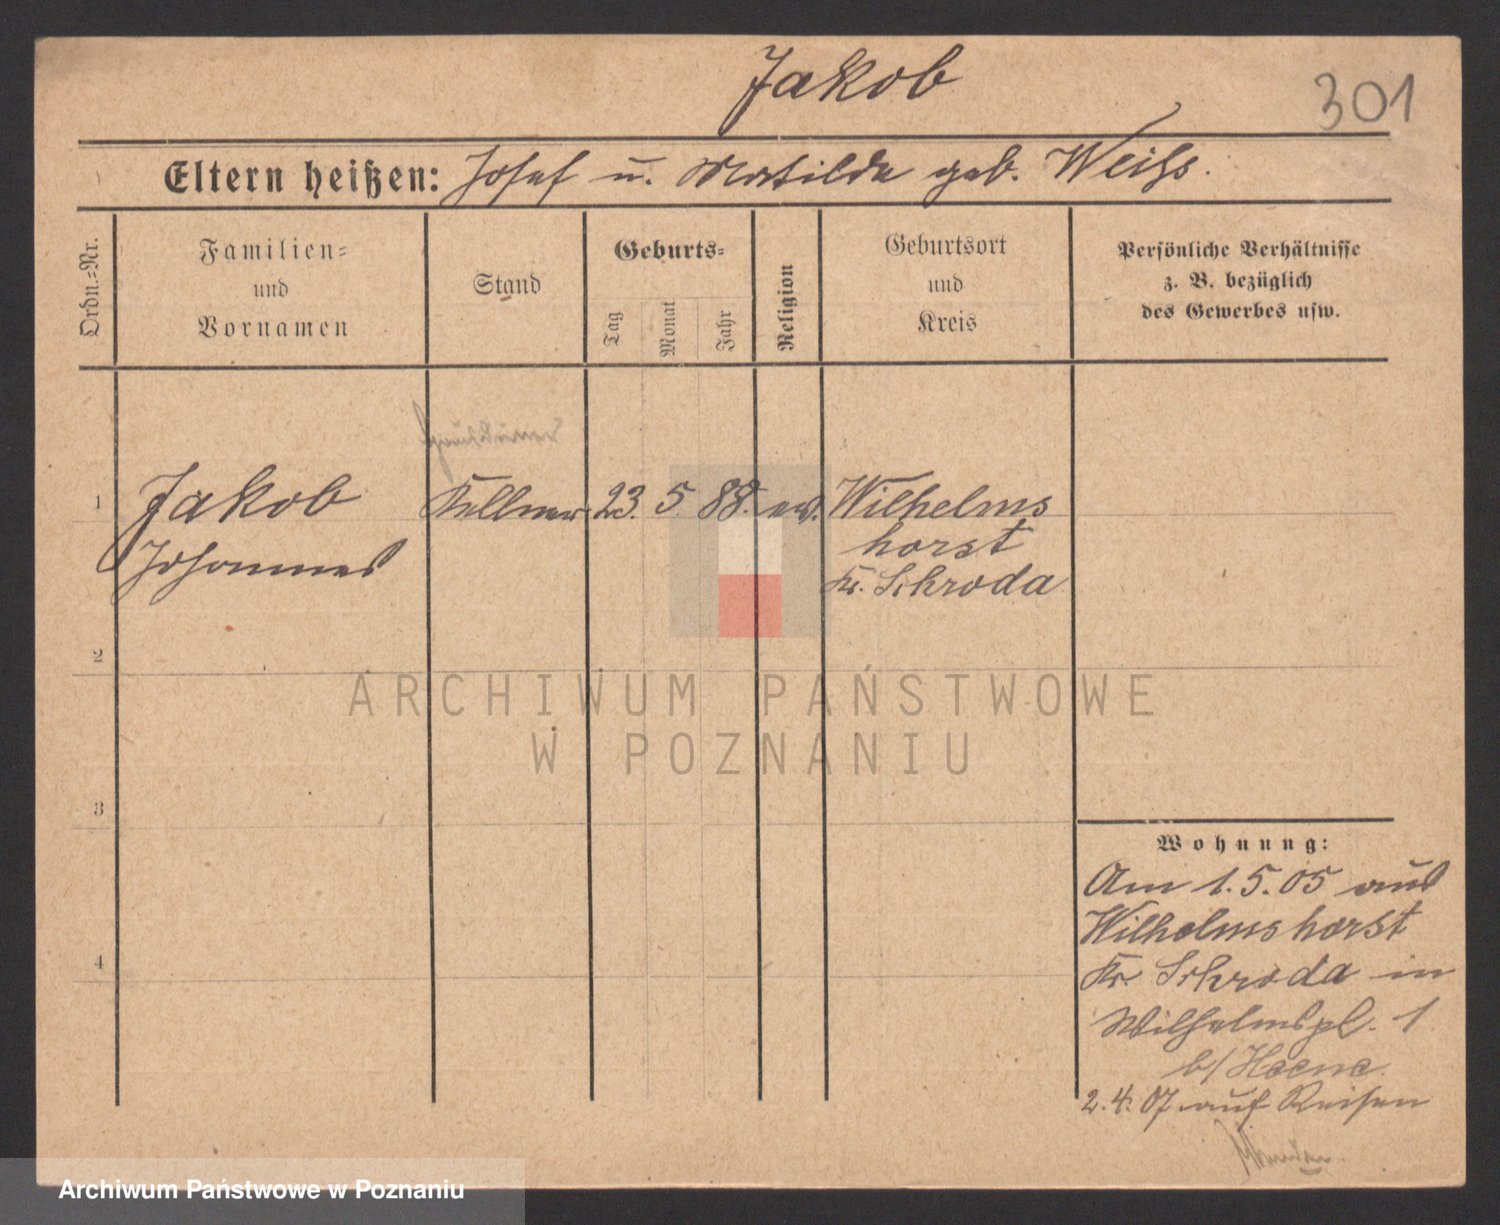 Jakob
301
Eltern heißen: Josef u. Matilde geb. Weihs.
Ordn.-Nr.
Familien-
und
Vornamen
Stand
Geburts-
Tag
Monat
Jahr
Religion
Geburtsort
und
Kreis
Persönliche Verhältnisse
z. B. bezüglich
des Gewerbes usw.
1 Jakob Kellner 23. 5. 88. ev. Wilhelms
horst
Johannes
Kr. Schroda
2
3
4
Wohnung:
Am 1.5.05 aus
Wilhelmshorst
Kr. Schroda in
Wilhelmspl. 1
b/
2.4.07 auf Reisen
ARCHIWUM PAŃSTWOWE
W POZNANIU
Archiwum Państwowe w Poznaniu